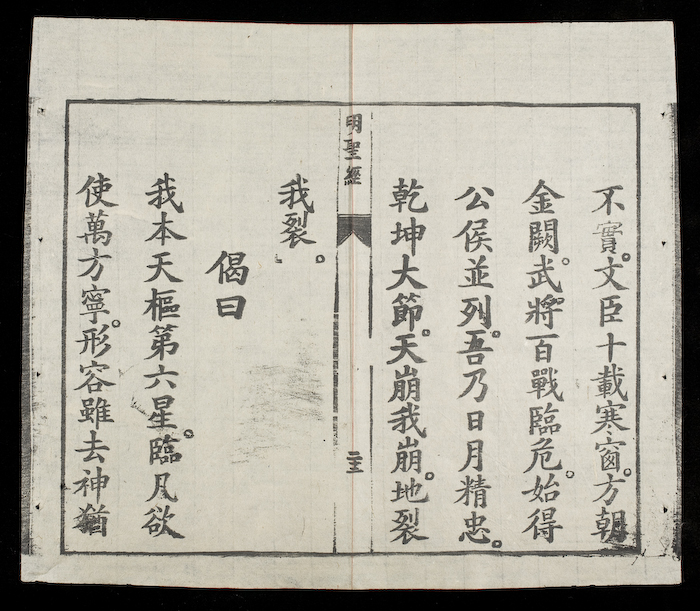 不實。文臣十載寒窗。方朝
金闕。武將百戰臨危。始得
公侯並列。吾乃日月精忠。
乾坤大節。天崩我崩。地裂
明聖經
二十三
我裂。
偈曰
我本天樞第六星。臨凡欲
使萬方寧。形容雖去神猶